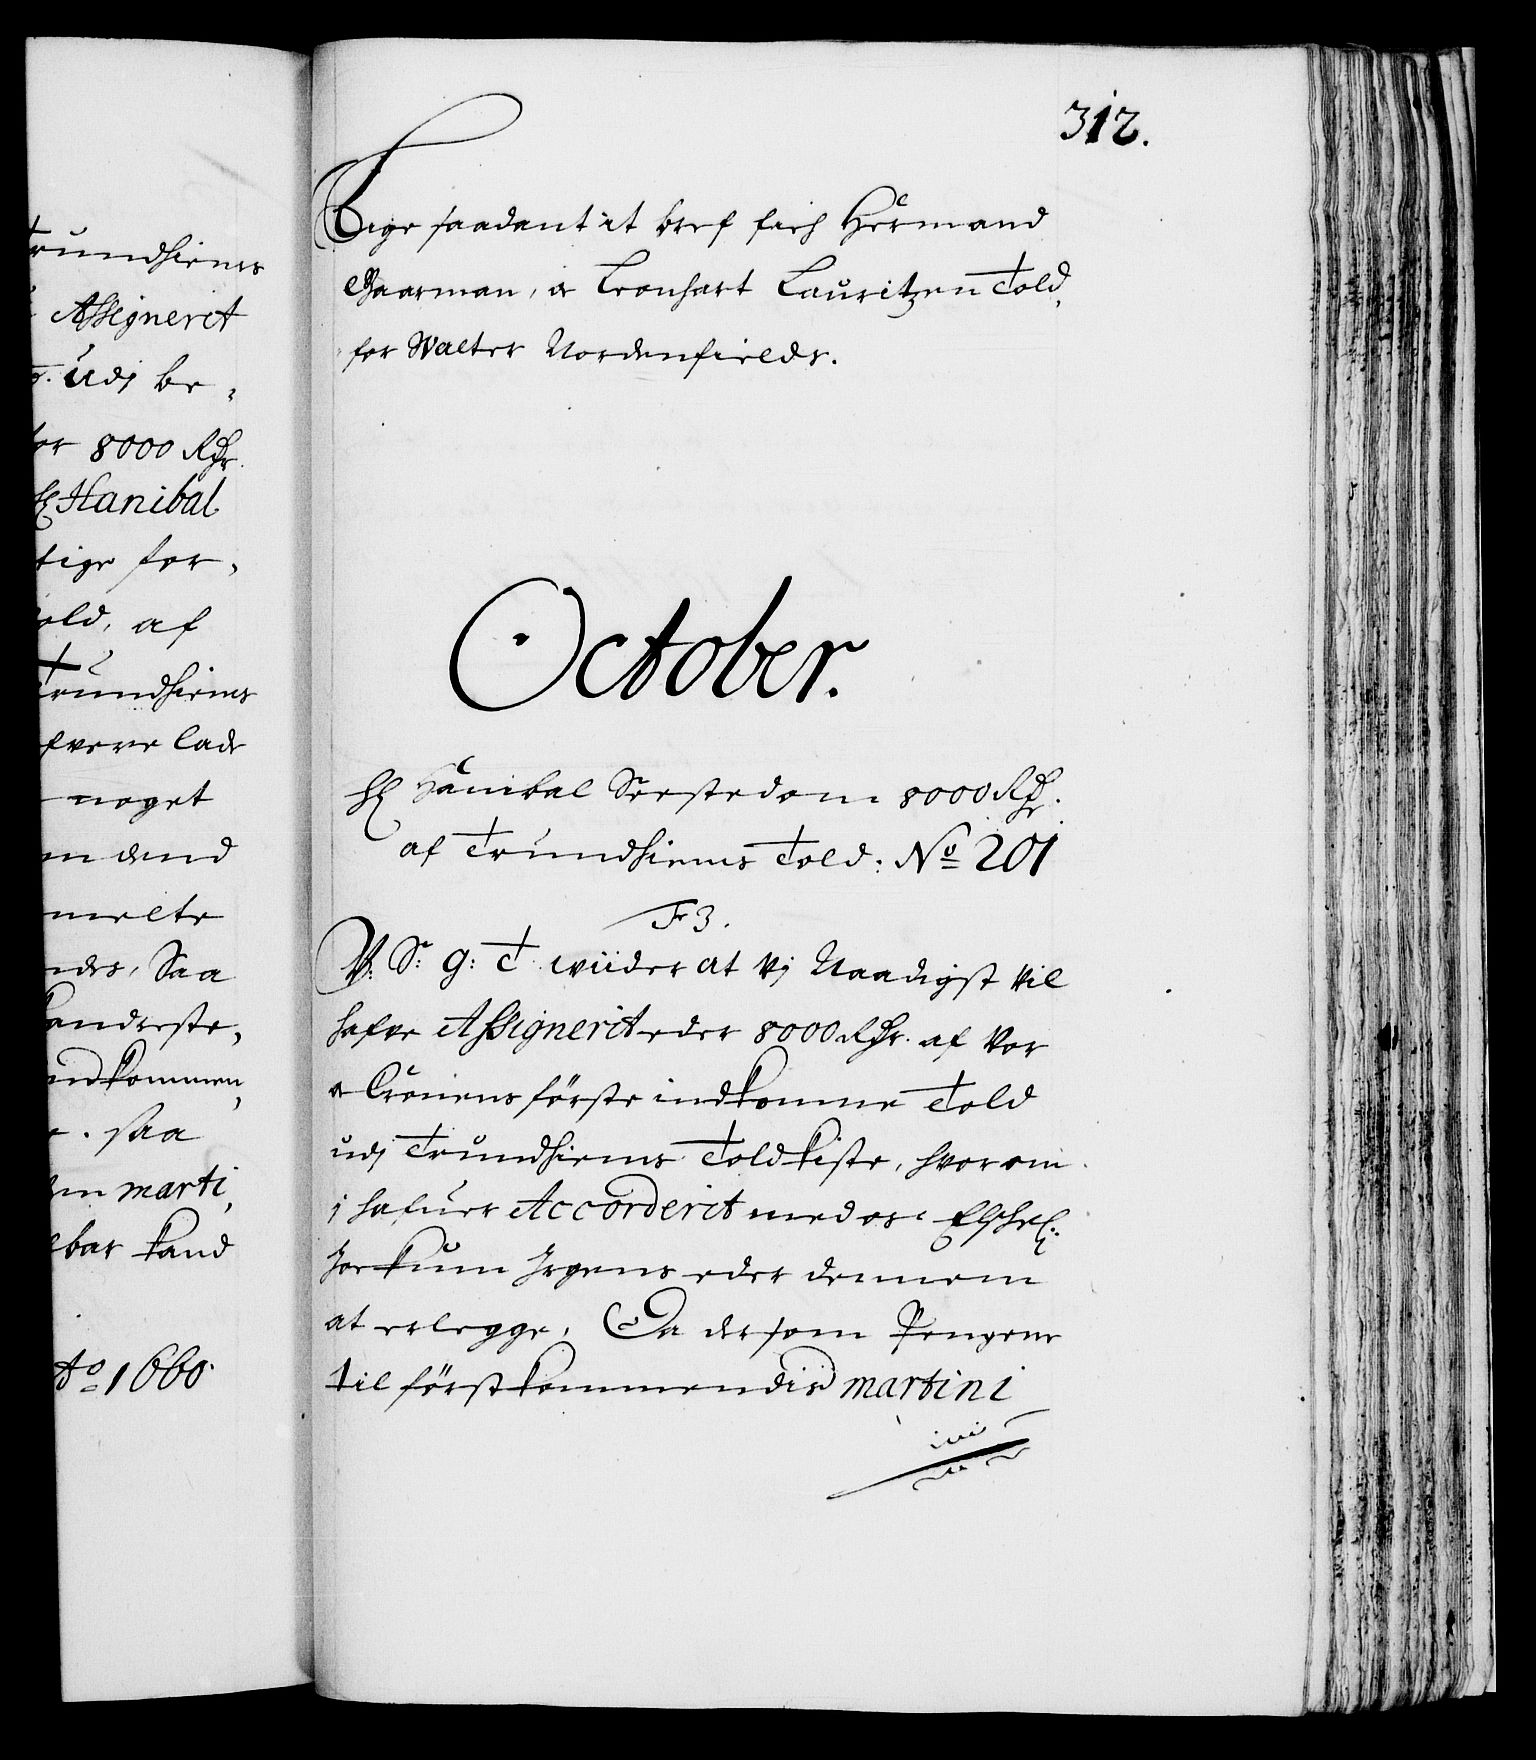 rundhiems
Assignerit
udj be,
for 8000 Rdr.
H Hanibal
tige for,
old, af
Trundhiems
fvere lade
noget
m dend
melte
ndes, Saa
kanderste,
indkommen,
saa
en marti,
bar kand
Ao 1660
312.
Lige saadant it bref fich Herman
Gaarman, oc Leonhart Lauritzen Told,
for Walter Nordenfields.
October.
H Hanibal Seestedom 8000 Rdr.
af Trundhiems Told: No 201
F 3.
V: S: g: T. wiider at Vj Naadigst vil
hafve Assignerit eder 8000 Rdr. af Vor
oc Cronens förste indkomne Told
udj Trundhiems Toldkiste, hvorom
j hafuer Accorderit med os Elskel:
Joekum Irgens eder dennem
at erlegge, Da dersom Pengene
til förstkommendis martini